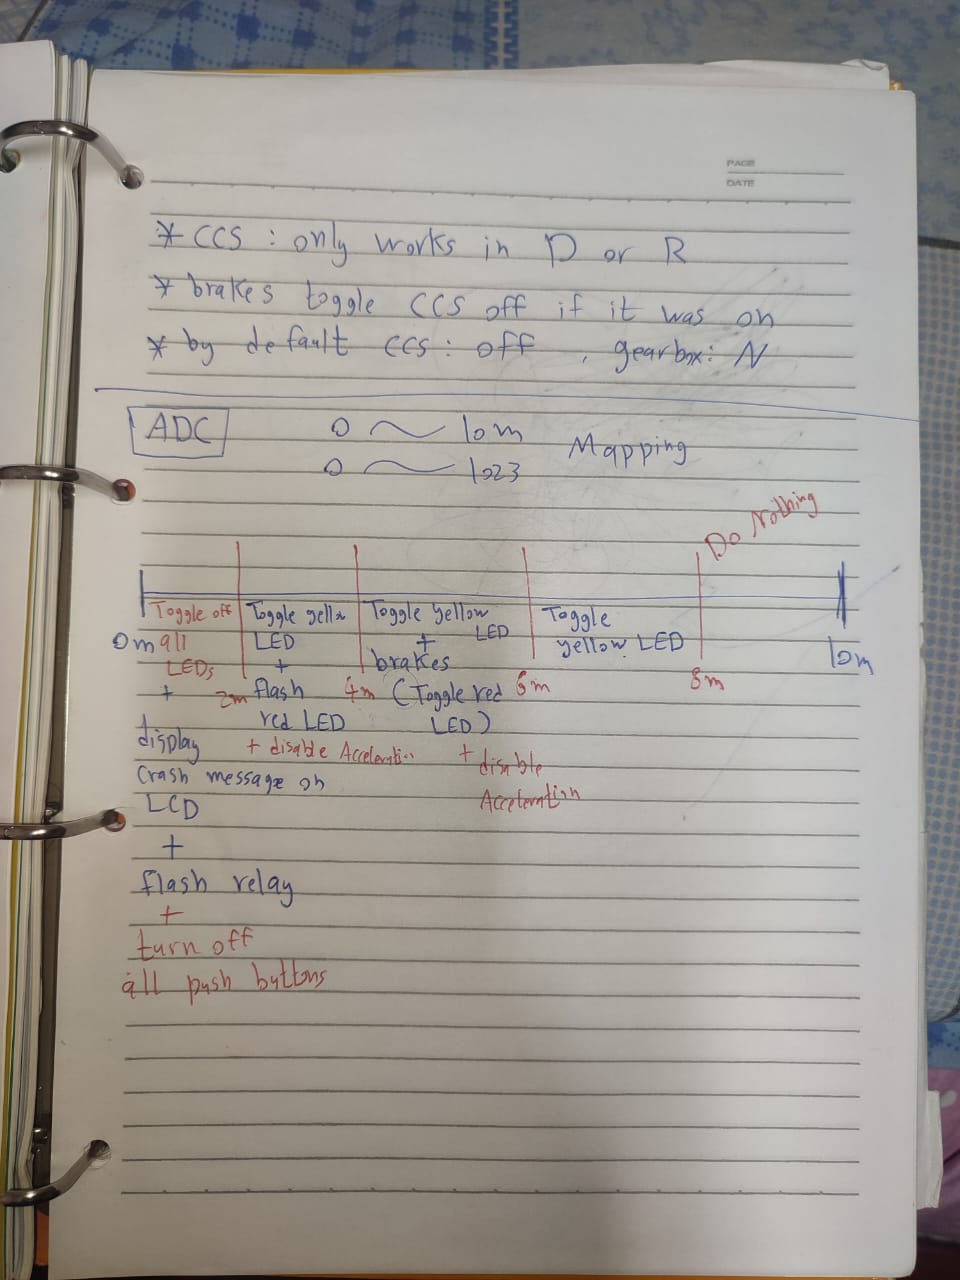 PAGE
DATE
* CCS : only works in D or R
* brakes toggle CCS off if it was on
* by default CCS : off , gearbox: N
ADC
0 ~ 10m
Mapping
0 ~ 1023
Do Nothing
Toggle off
all
LEDs
+
display
Crash message on
LCD
+
flash relay
+
turn off
all push buttons
Toggle yellow
LED
+
flash
red LED
+ disable Acceleration
Toggle yellow
LED
+
brakes
(Toggle red
LED)
+ disable
Acceleration
Toggle
yellow LED
0m
2m
4m
6m
8m
10m